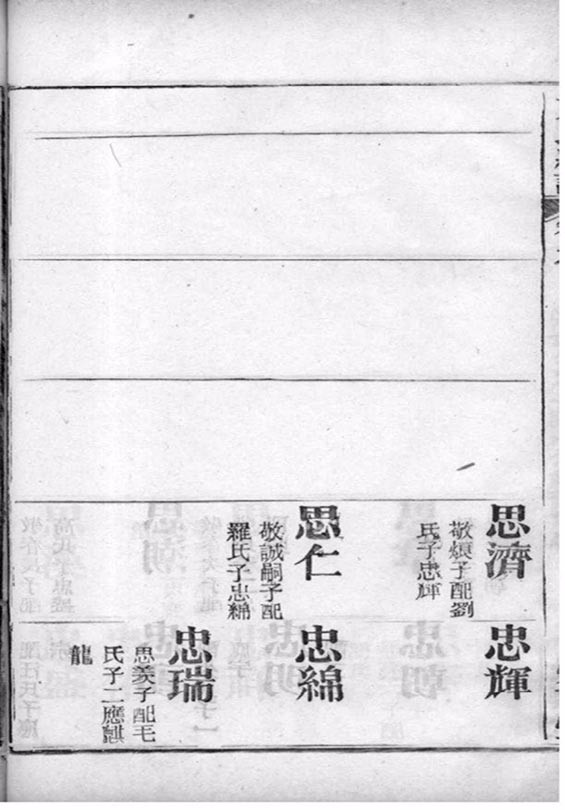 思濟
敬煩子配劉
氏子忠輝
思仁
敬誠嗣子配
羅氏子忠綿
忠輝
忠綿
忠瑞
思義子配毛
氏子二應麒
龍